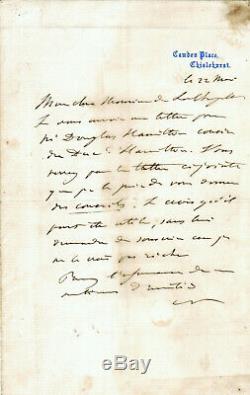 Camden Place,
Chislehurst.
le 22 Mai
Mon cher Monsieur de
Je vous envoie une lettre pour
Mr Douglas Hamilton cousin
du Duc Hamilton. Vous
verrez par la lettre
que je le prie de vous donner
des conseils. Je crois qu'il
peut être utile, sans lui
demander de car je
ne le crois pas riche
l'assurance de mes
sentiments d'amitié
N